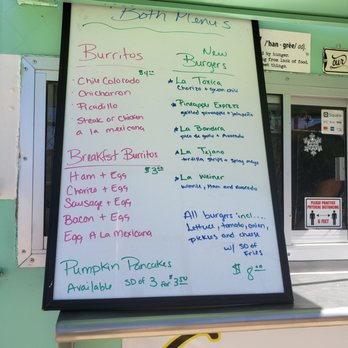 Both Menus
Burritos
$4.00
Chile Colorado
Chicharron
Picadillo
Steak or Chicken
a la mexicana
Breakfast Burritos
$3.00
Ham + Egg
Chorizo + Egg
Sausage + Egg
Bacon + Egg
Egg A La mexicana
Pumpkin Pancakes
Available SD of 3 for $3.50
New
Burgers
La Toxica
Chorizo + green chili
Pineapple Express
grilled pineapple + jalapeño
La Bandera
pico de gallo + Avocado
La Tejano
tortilla strips + spicy mayo
La Weiner
Winnie, Ham and Avocado
All burgers incl....
Lettuce, tomato, onion,
pickles and cheese
w/ SD of
Fries
$8.00
/han·grēe/ adj.
by hunger.
lack of food.
our
Square
PLEASE PRACTICE
PHYSICAL DISTANCING
6 FEET